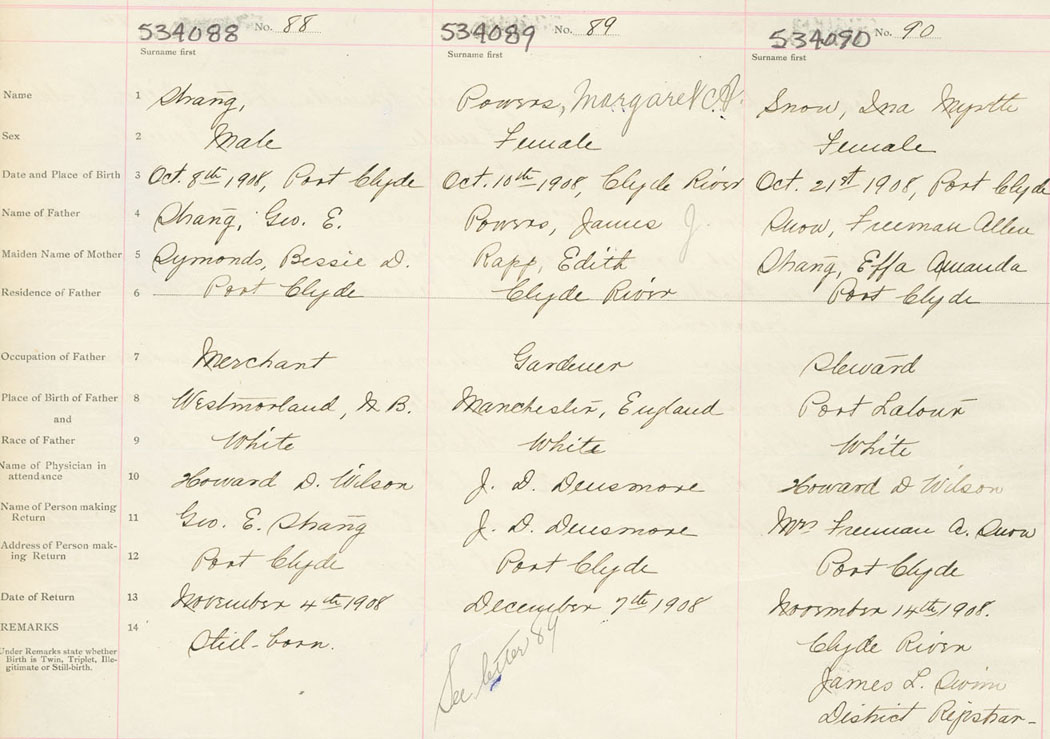 534088 No. 88 534089 No. 89 534090 No. 90
Surname first Surname first Surname first
Name 1 Strang, Powers, Margaret C. A. Snow, Ina Myrtle
Sex 2 Male Female Female
Date and Place of Birth 3 Oct. 8th 1908, Port Clyde Oct. 10th 1908, Clyde River Oct. 21st 1908, Port Clyde
Name of Father 4 Strang, Geo. E. Powers, James J. Snow, Freeman Allen
Maiden Name of Mother 5 Symonds, Bessie D. Rapp, Edith Strang, Effa Amanda
Residence of Father 6 Port Clyde Clyde River Port Clyde
Occupation of Father 7 Merchant Gardener Steward
Place of Birth of Father 8 Westmorland, N B. Manchester, England Port Latour
and
Race of Father 9 White White White
Name of Physician in
attendance 10 Howard D. Wilson J. D. Densmore Howard D Wilson
Name of Person making
Return 11 Geo. E. Strang J. D. Densmore Mrs Freeman A. Snow
Address of Person mak-
ing Return 12 Port Clyde Port Clyde Port Clyde
Date of Return 13 November 4th 1908 December 7th 1908 November 14th 1908.
REMARKS 14 Still-born. See letter 89 Clyde River
Under Remarks state whether
Birth is Twin, Triplet, Ille-
gitimate or Still-birth.
James L. Swim
District Registrar-